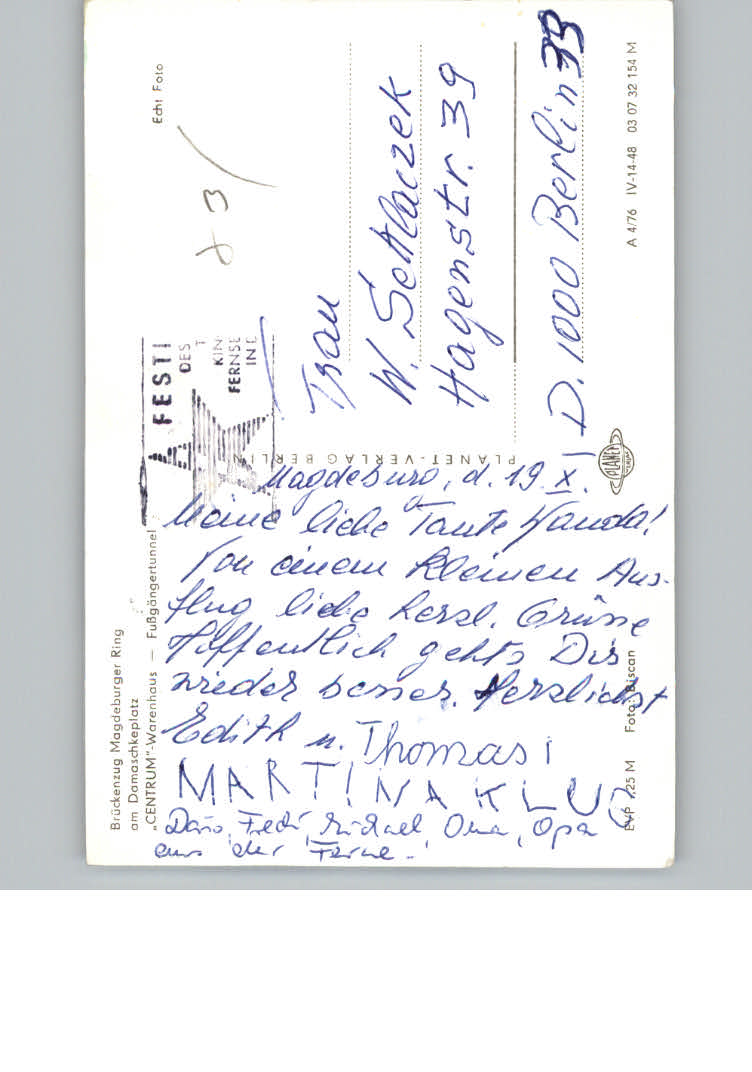 Brückenzug Magdeburger Ring
am Damaschkeplatz
„CENTRUM"-Warenhaus — Fußgängertunnel
Magdeburg, d. 19. X.
Meine liebe Tante Wanda!
Von einem kleinen Aus-
flug liebe herzl. Grüsse
Hoffentlich gehts Dir
wieder besser. Herzlichst
Edith u. Thomas
MARTINA KLUG
Michael, Oma, Opa
aus der Ferne.
EVP 0,25 M Foto: Biscan
PLANET-VERLAG BERLIN
PLANET
Echt Foto
83
FESTI
DES
T
KIN
FERNSE
IN D
Frau
W. Settlaczek
Hagenstr. 39
D. 1000 Berlin 33
A 4/76 IV-14-48 03 07 32 154 M